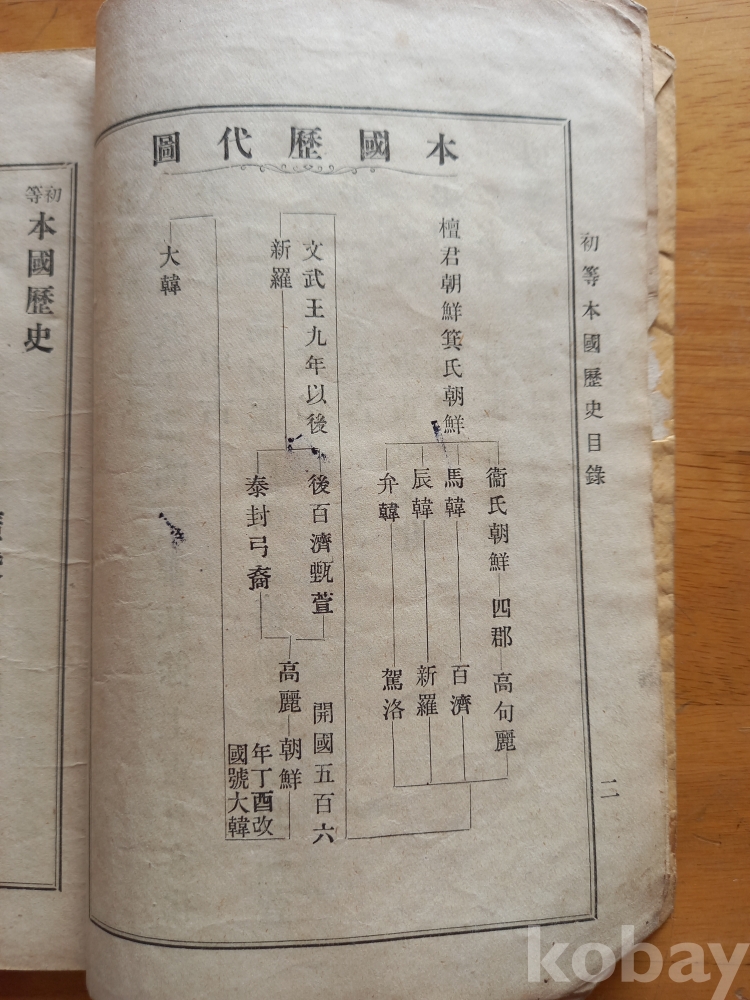 初等本國歷史目錄
二
本國歷代圖
檀君朝鮮箕氏朝鮮
衞氏朝鮮 四郡 高句麗
馬韓 百濟
辰韓 新羅
弁韓 駕洛
文武王九年以後
新羅
後百濟甄萱
泰封弓裔
高麗 朝鮮
開國五百六
年丁酉改
國號大韓
大韓
初等
本國歷史
kobay